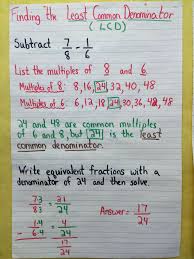 Finding the Least Common Denominator
(LCD)
Subtract 7/8 - 1/6
List the multiples of 8 and 6
Multiples of 8: 8, 16, 24, 32, 40, 48
Multiples of 6: 6, 12, 18, 24, 30, 36, 42, 48
24 and 48 are common multiples
of 6 and 8, but 24 is the least
common denominator.
Write equivalent fractions with a
denominator of 24 and then solve.
7·3/8·3 = 21/24
- 1·4/6·4 = 4/24
17/24
Answer = 17/24